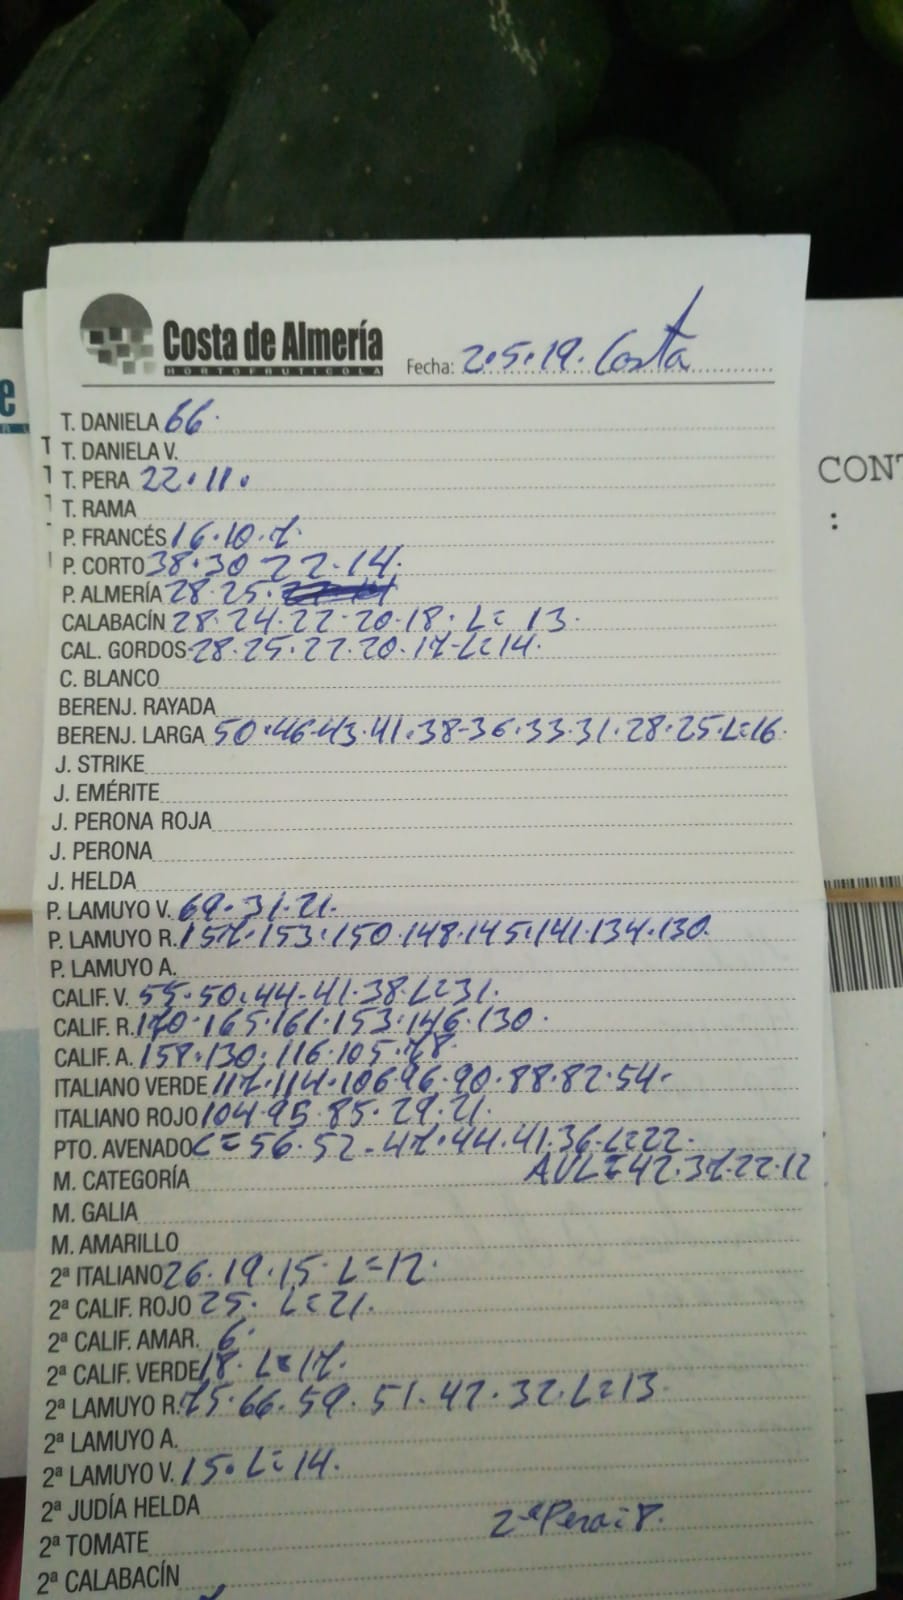 Costa de Almería
HORTOFRUTICOLA
Fecha: 2.5.19. Costa
T. DANIELA 66.
T. DANIELA V.
T. PERA 22.11.
T. RAMA
P. FRANCÉS 16.10.7.
P. CORTO 38.30 22.14.
P. ALMERÍA 28.25.
CALABACÍN 28.24.22.20.18. L= 13.
CAL. GORDOS 28.25.22.20.17-L=14.
C. BLANCO
BERENJ. RAYADA
BERENJ. LARGA 50.46.43.41.38-36.33.31.28.25.L=16.
J. STRIKE
J. EMÉRITE
J. PERONA ROJA
J. PERONA
J. HELDA
P. LAMUYO V. 69.31.21.
P. LAMUYO R. 157.153.150.148.145.141.134.130.
P. LAMUYO A.
CALIF. V. 55.50.44.41.38.L=31.
CALIF. R. 170.165.161.153.146.130.
CALIF. A. 158.130.116.105.78.
ITALIANO VERDE 117.114.106.96.90.88.82.54.
ITALIANO ROJO 104.95.85.29.21.
PTO. AVENADO L=56.52.47.44.41.36.L=22.
M. CATEGORÍA AVL=42.37.22.12
M. GALIA
M. AMARILLO
2ª ITALIANO 26.19.15. L=12.
2ª CALIF. ROJO 25. L=21.
2ª CALIF. AMAR. 6.
2ª CALIF. VERDE 18. L=17.
2ª LAMUYO R. 75.66.59.51.42.32.L=13.
2ª LAMUYO A.
2ª LAMUYO V. 15. L=14.
2ª JUDÍA HELDA
2ª Pera=8.
2ª TOMATE
2ª CALABACÍN
CONT
: